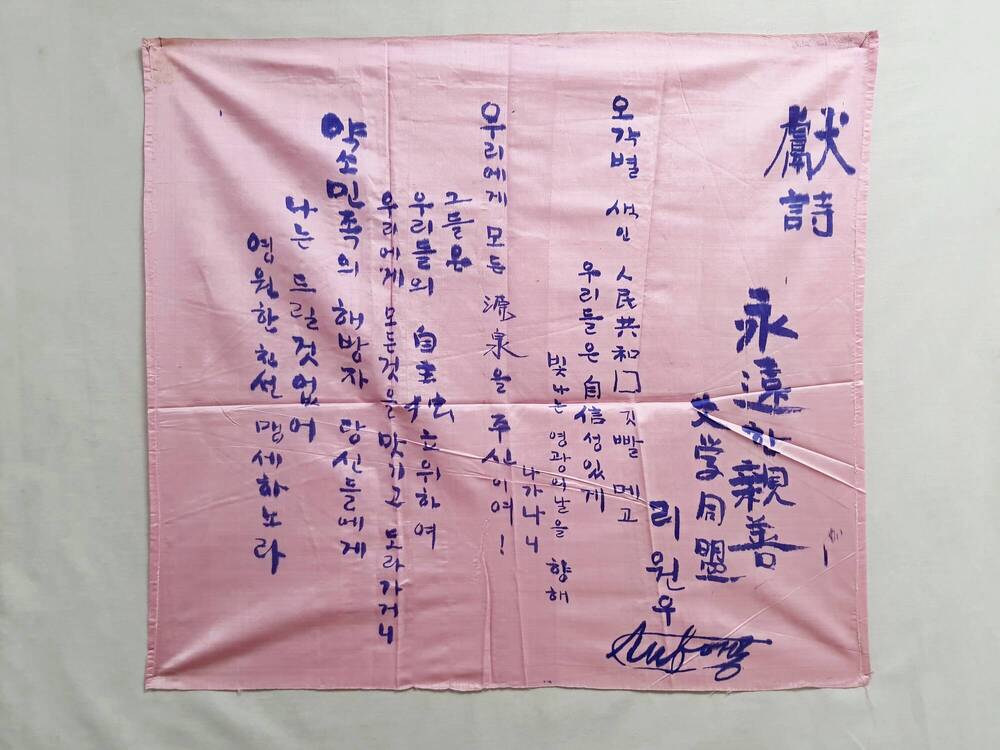 獻詩
永遠한 親善
文学同盟
리원우
오각별 색인 人民共和囗 깃빨 메고
우리들은 自信성있게
빛나는 영광의 날을 향해
나가나니
우리에게 모든 源泉을 주신이여!
그들은
우리들의 自主 호위하여
우리에게 모든것을 맛기고 도라가거니
약소민족의 해방자 당신들에게
나는 드릴것 없어
영원한 친선 맹세하노라